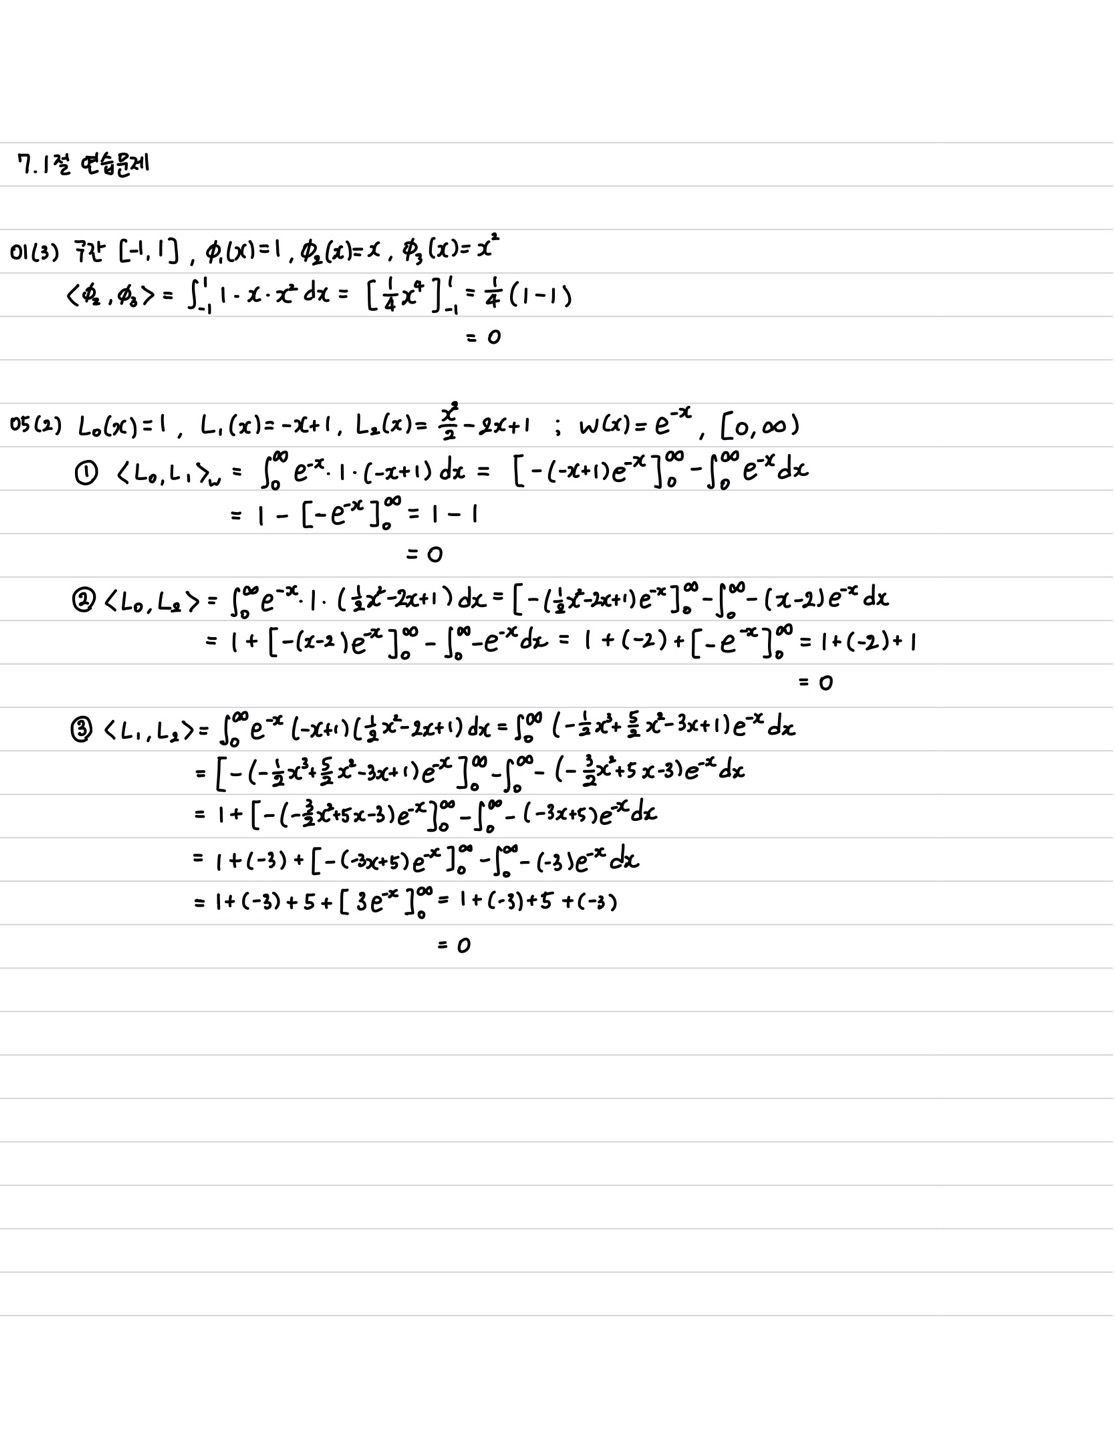 7.1절 연습문제
01(3) 구간 [-1, 1], ϕ₁(x)=1, ϕ₂(x)=x, ϕ₃(x)=x²
<ϕ₂, ϕ₃> = ∫₋₁¹ 1·x·x² dx = [¼x⁴]₋₁¹ = ¼(1-1)
= 0
05(2) L₀(x)=1, L₁(x)=-x+1, L₂(x)=x²/2-2x+1 ; w(x)=e⁻ˣ, [0,∞)
① <L₀, L₁>w = ∫₀^∞ e⁻ˣ·1·(-x+1) dx = [-(-x+1)e⁻ˣ]₀^∞ - ∫₀^∞ e⁻ˣ dx
= 1 - [-e⁻ˣ]₀^∞ = 1-1
= 0
② <L₀, L₂> = ∫₀^∞ e⁻ˣ·1·(½x²-2x+1) dx = [-(½x²-2x+1)e⁻ˣ]₀^∞ - ∫₀^∞ -(x-2)e⁻ˣ dx
= 1 + [-(x-2)e⁻ˣ]₀^∞ - ∫₀^∞ -e⁻ˣ dx = 1+(-2)+[-e⁻ˣ]₀^∞ = 1+(-2)+1
= 0
③ <L₁, L₂> = ∫₀^∞ e⁻ˣ(-x+1)(½x²-2x+1) dx = ∫₀^∞ (-½x³+5/2x²-3x+1)e⁻ˣ dx
= [-(-½x³+5/2x²-3x+1)e⁻ˣ]₀^∞ - ∫₀^∞ -(-3/2x²+5x-3)e⁻ˣ dx
= 1+[-(-3/2x²+5x-3)e⁻ˣ]₀^∞ - ∫₀^∞ -(-3x+5)e⁻ˣ dx
= 1+(-3)+[-(-3x+5)e⁻ˣ]₀^∞ - ∫₀^∞ -(-3)e⁻ˣ dx
= 1+(-3)+5+[3e⁻ˣ]₀^∞ = 1+(-3)+5+(-3)
= 0